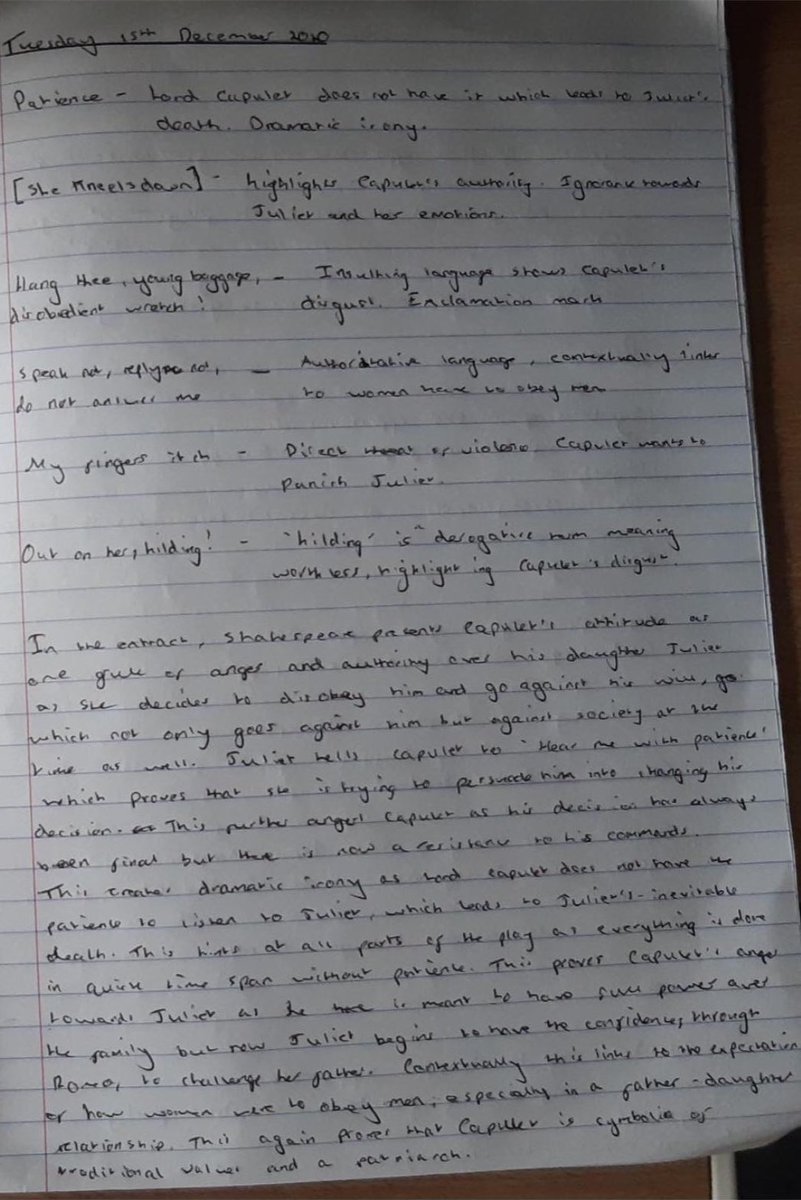 Tuesday 15th December 2020
Patience - Lord Capulet does not have it which leads to Juliet's
death. Dramatic irony.
[She Kneels down] - highlights Capulet's authority. Ignorance towards
Juliet and her emotions.
Hang thee, young baggage, - Insulting language shows Capulet's
disobedient wretch! disgust. Exclamation mark
Speak not, reply not, - Authoritative language, contextually links
do not answer me to women have to obey men
My fingers itch - Direct threat of violence. Capulet wants to
punish Juliet.
Out on her, hilding! - 'hilding' is a derogative term meaning
worthless, highlighting Capulet's disgust.
In the extract, Shakespeare presents Capulet's attitude as
one full of anger and authority over his daughter Juliet
as she decides to disobey him and go against his will,
which not only goes against him but against society at the
time as well. Juliet tells Capulet to 'Hear me with patience'
which proves that she is trying to persuade him into changing his
decision. This further angers Capulet as his decision has always
been final but there is now a resistance to his commands.
This creates dramatic irony as Lord Capulet does not have the
patience to listen to Juliet, which leads to Juliet's inevitable
death. This hints at all parts of the play as everything is done
in quick time span without patience. This proves Capulet's anger
towards Juliet as he is meant to have full power over
the family but now Juliet begins to have the confidence, through
Romeo, to challenge her father. Contextually this links to the expectation
of how women were to obey men, especially in a father-daughter
relationship. This again proves that Capulet is symbolic of
traditional values and a patriarch.